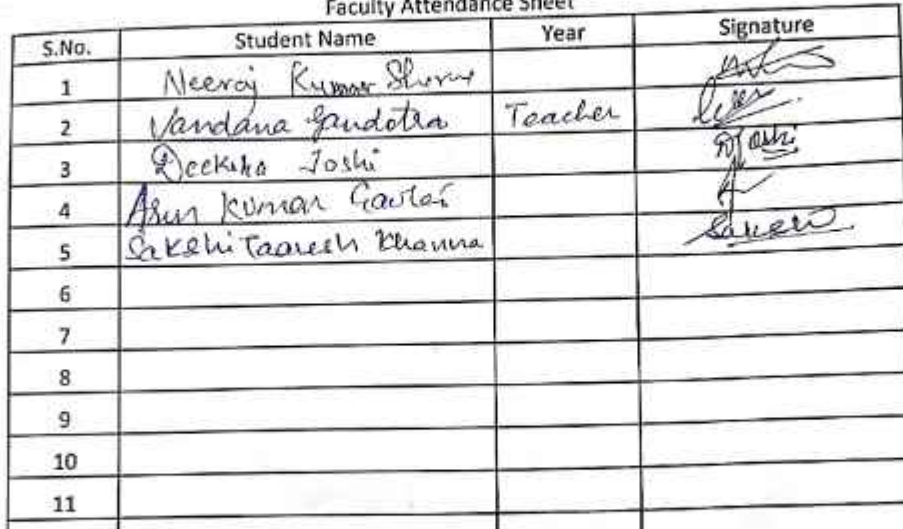 Faculty Attendance Sheet
S.No. Student Name Year Signature
1 Neeraj Kumar
2 Vandana Gandotra Teacher
3 Deeksha Joshi DJoshi
4 Arun Kumar
5 Sakshi Taaresh Khanna Sakshi
6
7
8
9
10
11